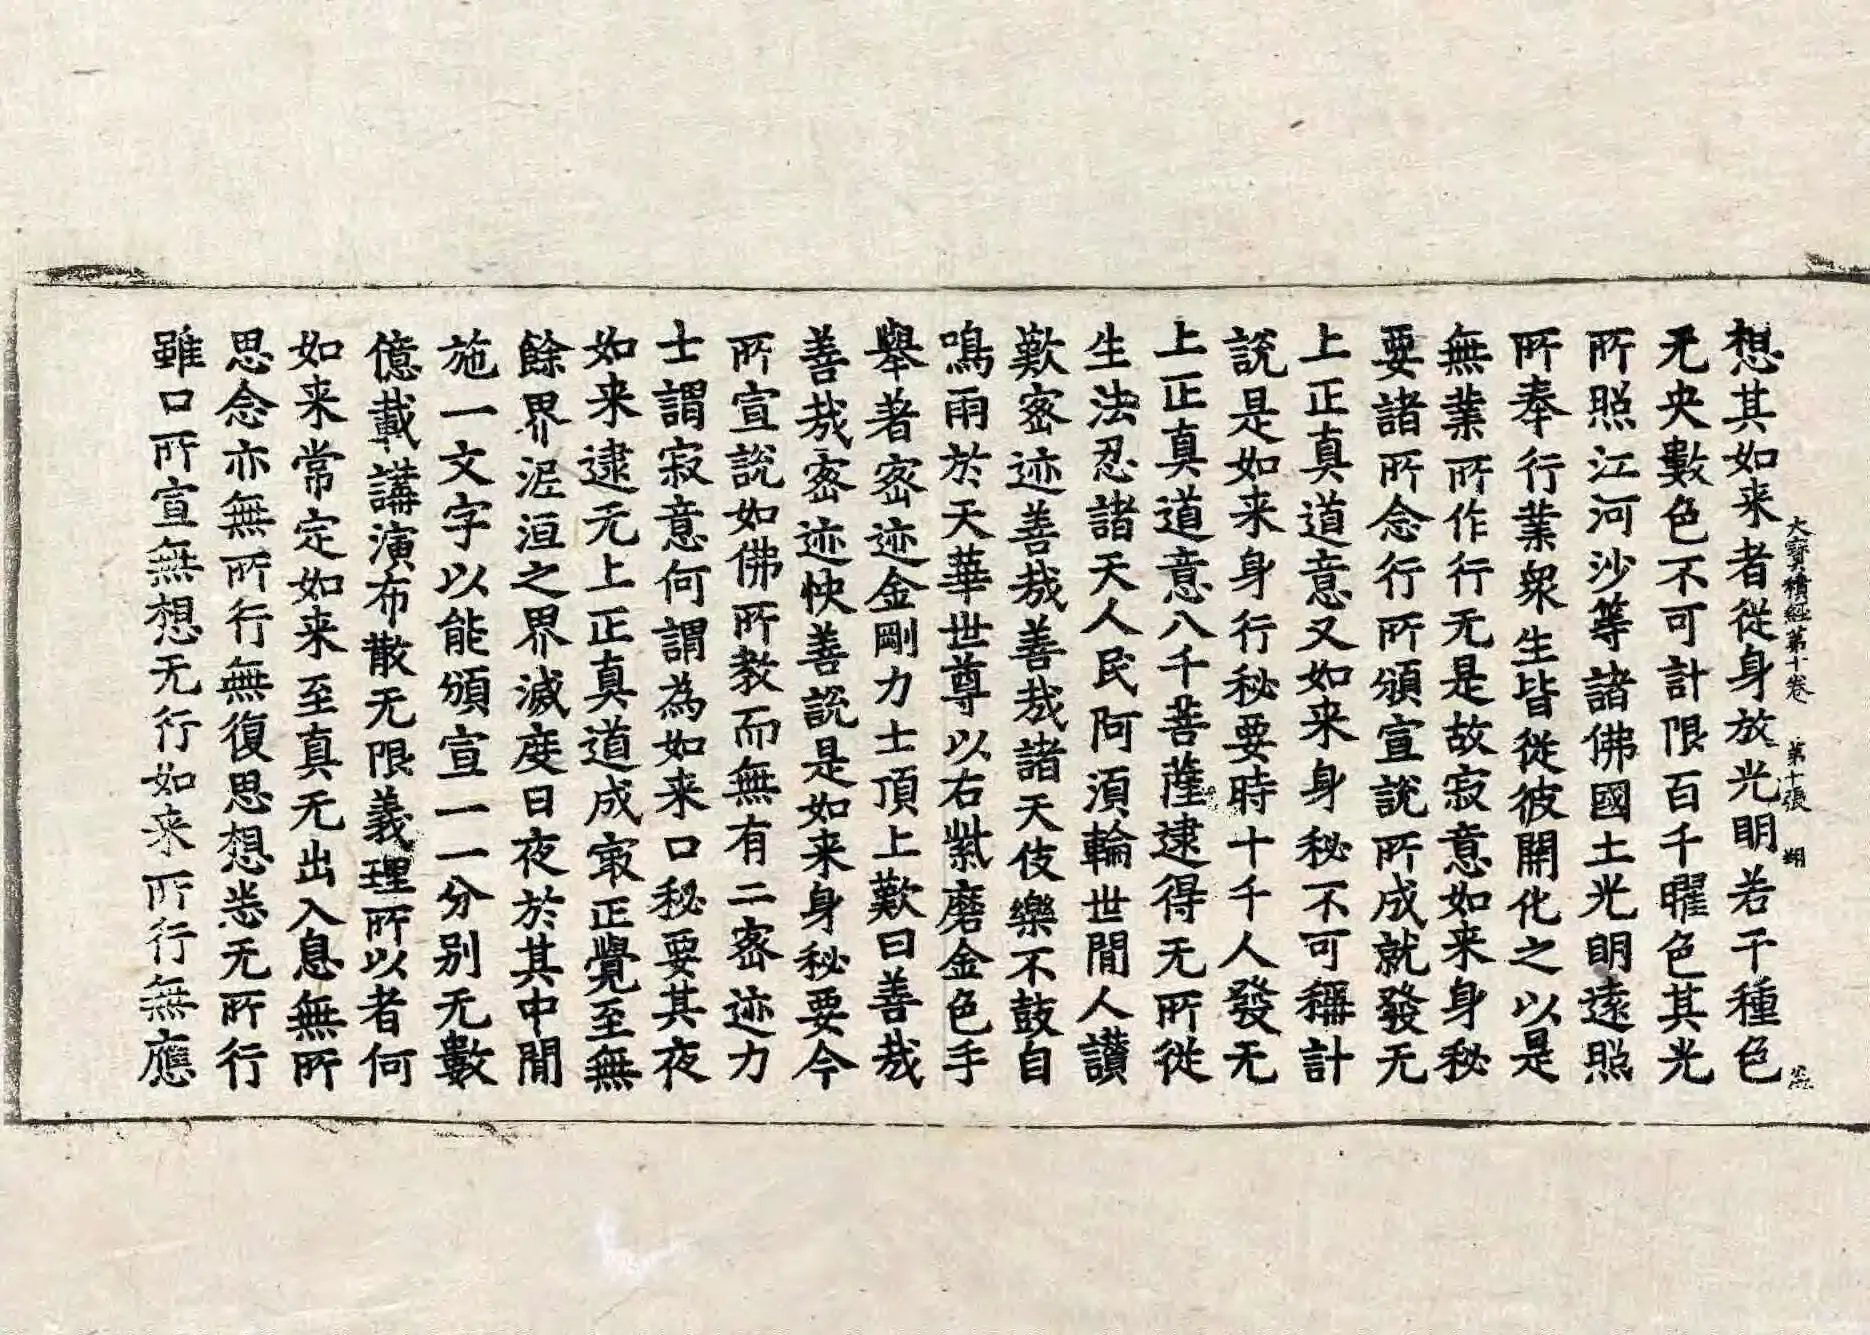 大寶積經第十卷 第十張 翔
想其如来者從身放光明若干種色
无央數色不可計限百千曜色其光
所照江河沙等諸佛國土光明遠照
所奉行業衆生皆從彼開化之以是
無業所作行无是故寂意如来身秘
要諸所念行所頒宣說所成就發无
上正真道意又如来身秘不可稱計
說是如来身行秘要時十千人發无
上正真道意八千菩薩逮得无所從
生法忍諸天人民阿湏輪世間人讃
歎宻迹善哉善哉諸天伎樂不鼓自
鳴雨於天華世尊以右紫磨金色手
舉著宻迹金剛力士頂上歎曰善哉
善哉宻迹快善說是如来身秘要今
所宣說如佛所教而無有二宻迹力
士謂寂意何謂為如来口秘要其夜
如来逮无上正真道成㝡正覺至無
餘界泥洹之界滅度日夜於其中間
施一文字以能頒宣一一分别无數
億載講演布散无限義理所以者何
如来常定如来至真无出入息無所
思念亦無所行無復思想悉无所行
雖口所宣無想无行如来所行無應